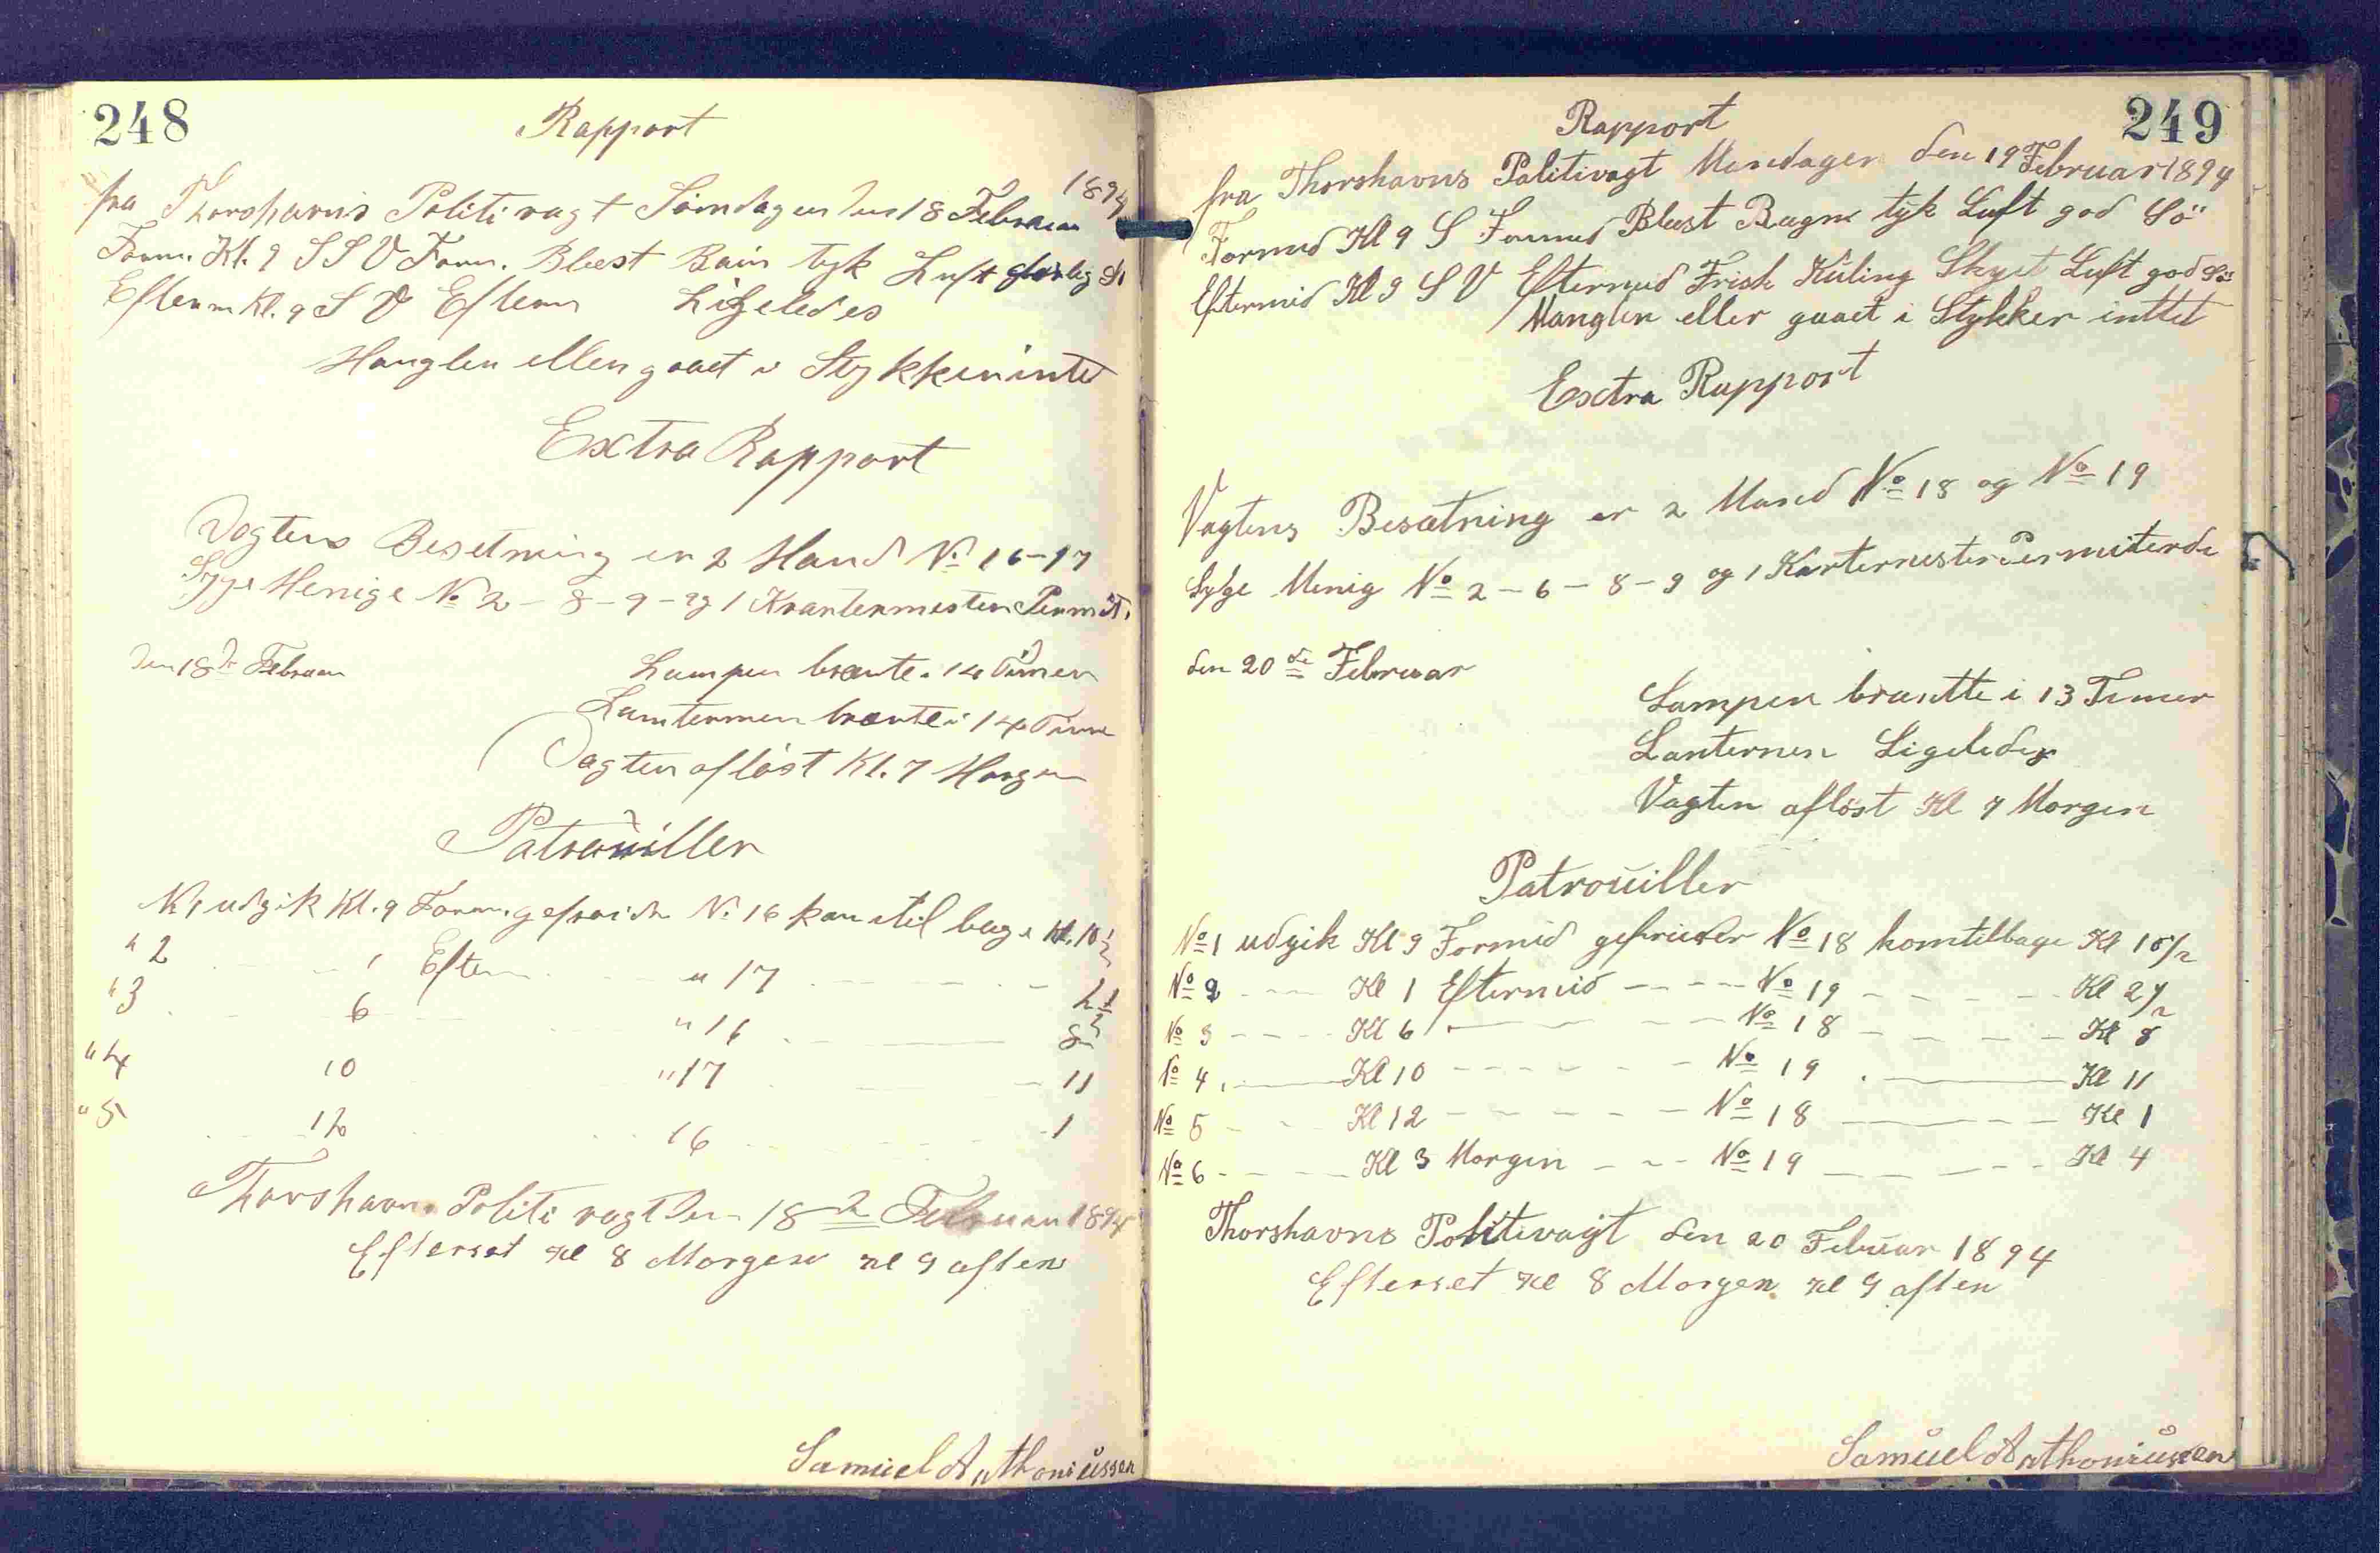 248
Rapport
fra Thorshavns Politivagt Søndagen den 18 Februar 1894
Form. Kl. 9 S S V Form. Blæst Rain tyk Luft
Efterm Kl. 9 S V Efterm Ligeledes
Mangler eller gaaet i Stykker intet
Extra Rapport
Vagtens Besetning er 2 Mand No 16-17
Syge Menige No 2 - 8 - 9 - og 1 Kvartermester Permit.
den 18de Februar
Lampen brænte i 14 Timer
Lanternen brænte i 14 Time
Vagten afløst Kl. 7 Morgen
Patrouiller
N1 udgik Kl. 9 Form. gefreider N. 16 kom til bage Kl. 10½
" 2 1 Efterm " 17 2½
" 3 6 " 16 8
" 4 10 " 17 11
" 5 12 16 1
Thorshavns Politivagt den 18 Februar 1894
Efterset Kl 8 Morgen Kl 9 aften
Samuel Anthoniussen
249
Rapport
fra Thorshavns Politivagt Mandagen den 19 Februar 1894
Formid Kl 9 S Formid Blæst Rægn tyk Luft god Sö
Eftermid Kl 9 S V Eftermid Frisk Kuling Skyet Luft god Sö
Mangler eller gaaet i Stykker inttet
Esctra Rapport
Vagtens Besætning er 2 Mand No 18 og No 19
Syge Menig No 2 - 6 - 8 - 9 og 1 Kvartermester Permiterde
den 20de Februar
Lampen brændte i 13 Timer
Lanternen Ligeledes
Vagten aflöst Kl 7 Morgen
Patrouiller
No 1 udgik Kl 9 Formid gefreider No 18 komtilbage Kl 10½
No 2 - - - Kl 1 Eftermid - - - - No 19 - - - - - Kl 2½
No 3 - - - - Kl 6 - - - No 18 - - - - Kl 8
No 4 - - - Kl 10 - - - - - No 19 - - - Kl 11
No 5 - - Kl 12 - - - - - No 18 - - - - Kl 1
No 6 - - - - Kl 3 Morgen - - - No 19 - - - - Kl 4
Thorshavns Politivagt den 20 Februar 1894
Efterset Kl 8 Morgen Kl 9 aften
Samuel Anthoniussen